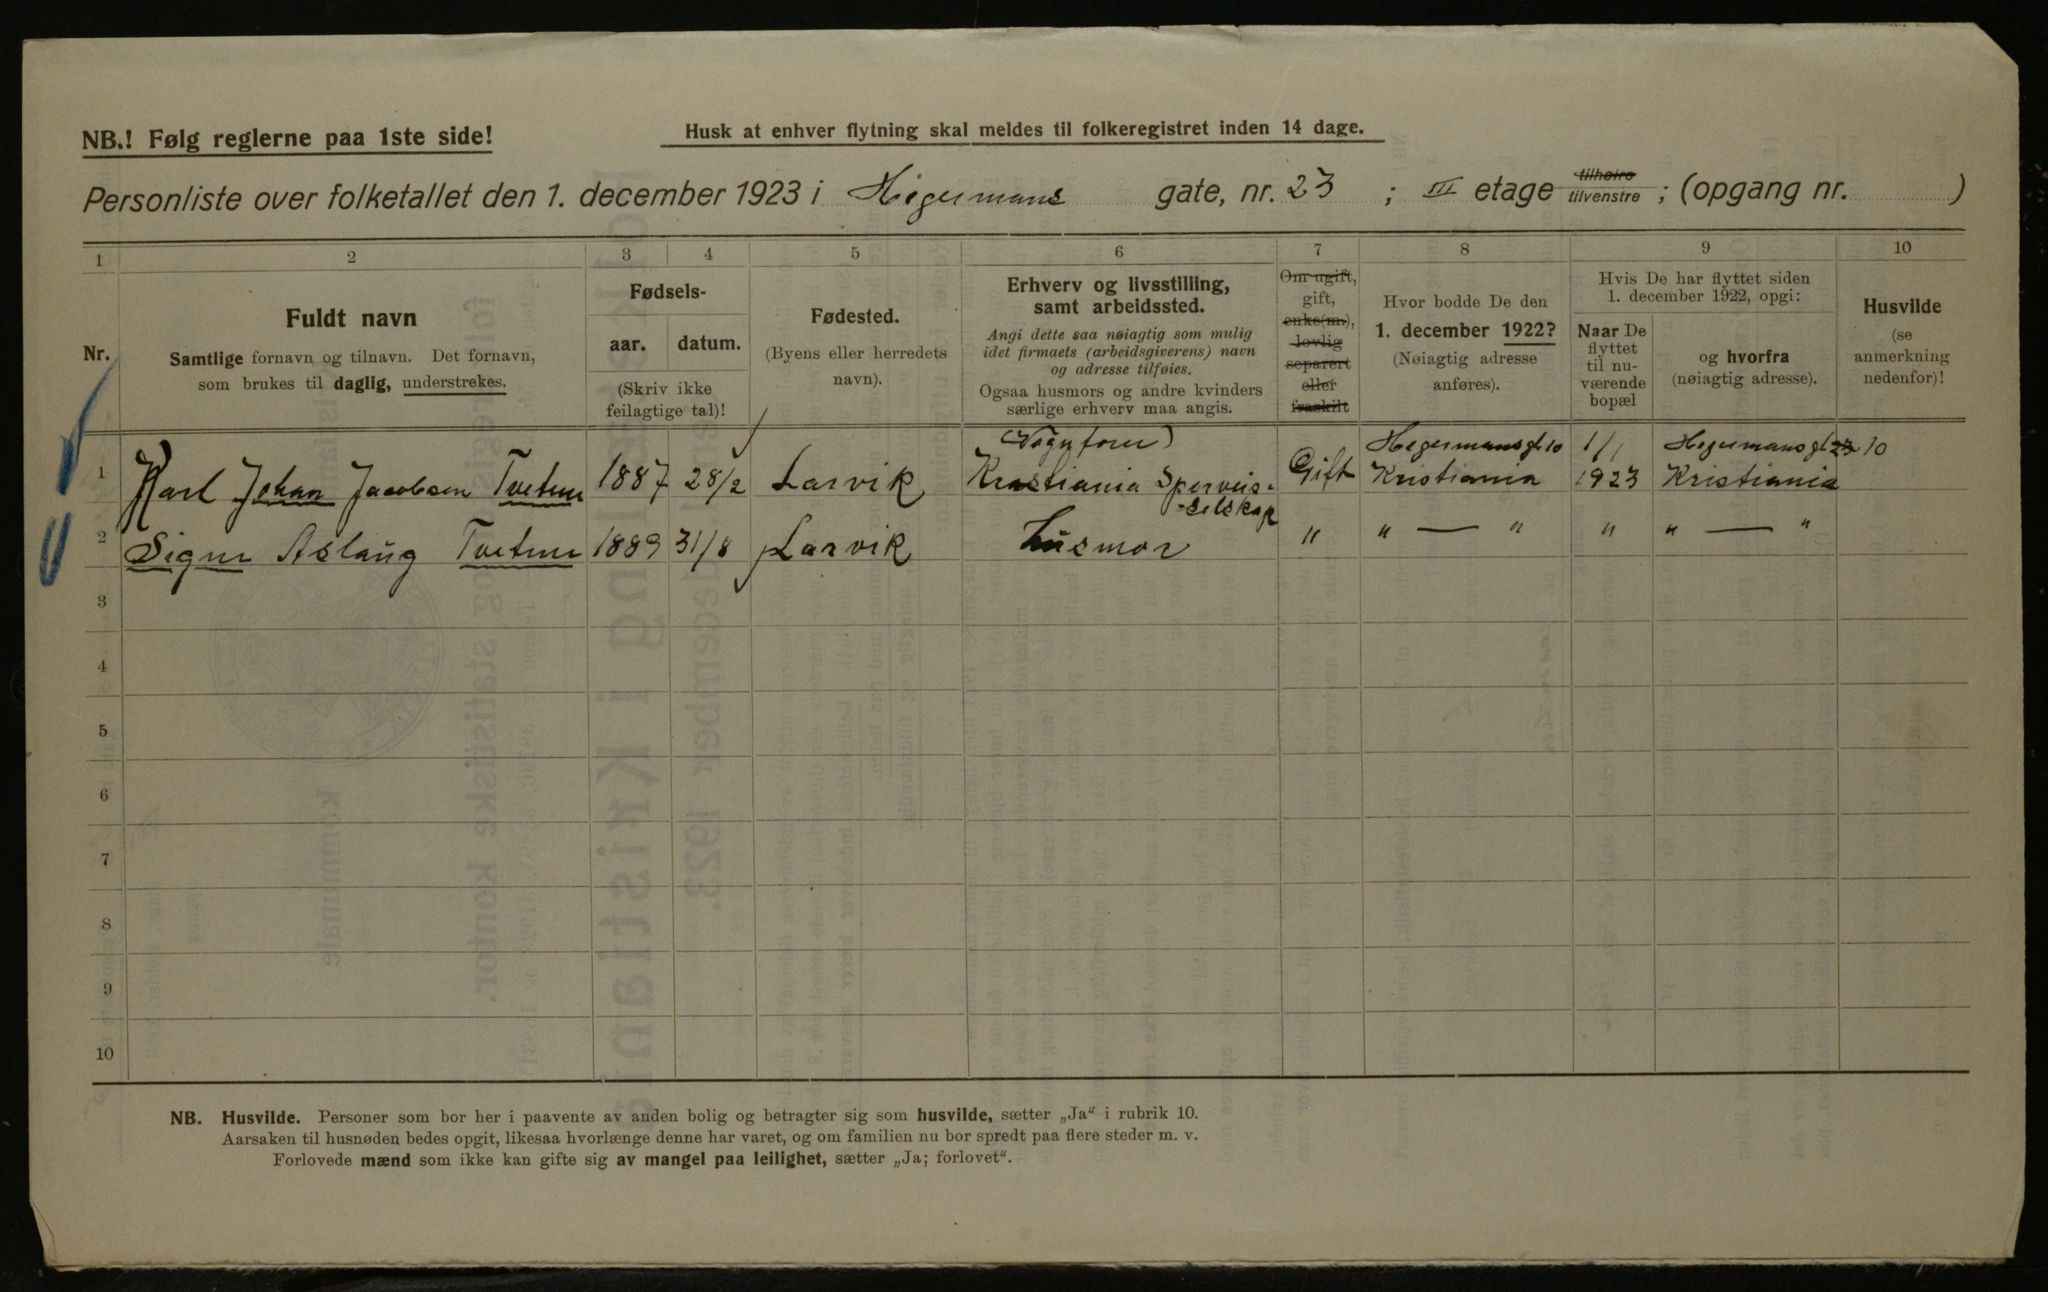 NB.! Følg reglerne paa 1ste side!
Husk at enhver flytning skal meldes til folkeregistret inden 14 dage.
Personliste over folketallet den 1. december 1923 i Hegermans gate, nr. 23 ; III etage tilhøire tilvenstre ; (opgang nr. )
1 2 3 4 5 6 7 8 9 10
Nr.
Fuldt navn
Samtlige fornavn og tilnavn. Det fornavn,
som brukes til daglig, understrekes.
Fødsels-
aar. datum.
(Skriv ikke
feilagtige tal)!
Fødested.
(Byens eller herredets
navn).
Erhverv og livsstilling,
samt arbeidssted.
Angi dette saa nøiagtig som mulig
idet firmaets (arbeidsgiverens) navn
og adresse tilføies.
Ogsaa husmors og andre kvinders
særlige erhverv maa angis.
Om ugift,
gift,
enke(m.),
lovlig
separert
eller
fraskilt
Hvor bodde De den
1. december 1922?
(Nøiagtig adresse
anføres).
Hvis De har flyttet siden
1. december 1922, opgi:
Naar De
flyttet
til nu-
værende
bopæl
og hvorfra
(nøiagtig adresse).
Husvilde
(se
anmerkning
nedenfor)!
(Vognfører) Hegermansgt 10 1/1 Hegermansgt 23 10
1 Karl Johan Jacobsen Tvetene 1887 28/2 Larvik Kristiania Sporveis- Gift Kristiania 1923 Kristiania
-selskap
2 Signe Aslaug Tvetene 1889 31/8 Larvik Husmor " " — " " " — "
3
4
5
6
7
8
9
10
NB. Husvilde. Personer som bor her i paavente av anden bolig og betragter sig som husvilde, sætter „Ja“ i rubrik 10.
Aarsaken til husnøden bedes opgit, likesaa hvorlænge denne har varet, og om familien nu bor spredt paa flere steder m. v.
Forlovede mænd som ikke kan gifte sig av mangel paa leilighet, sætter „Ja; forlovet“.